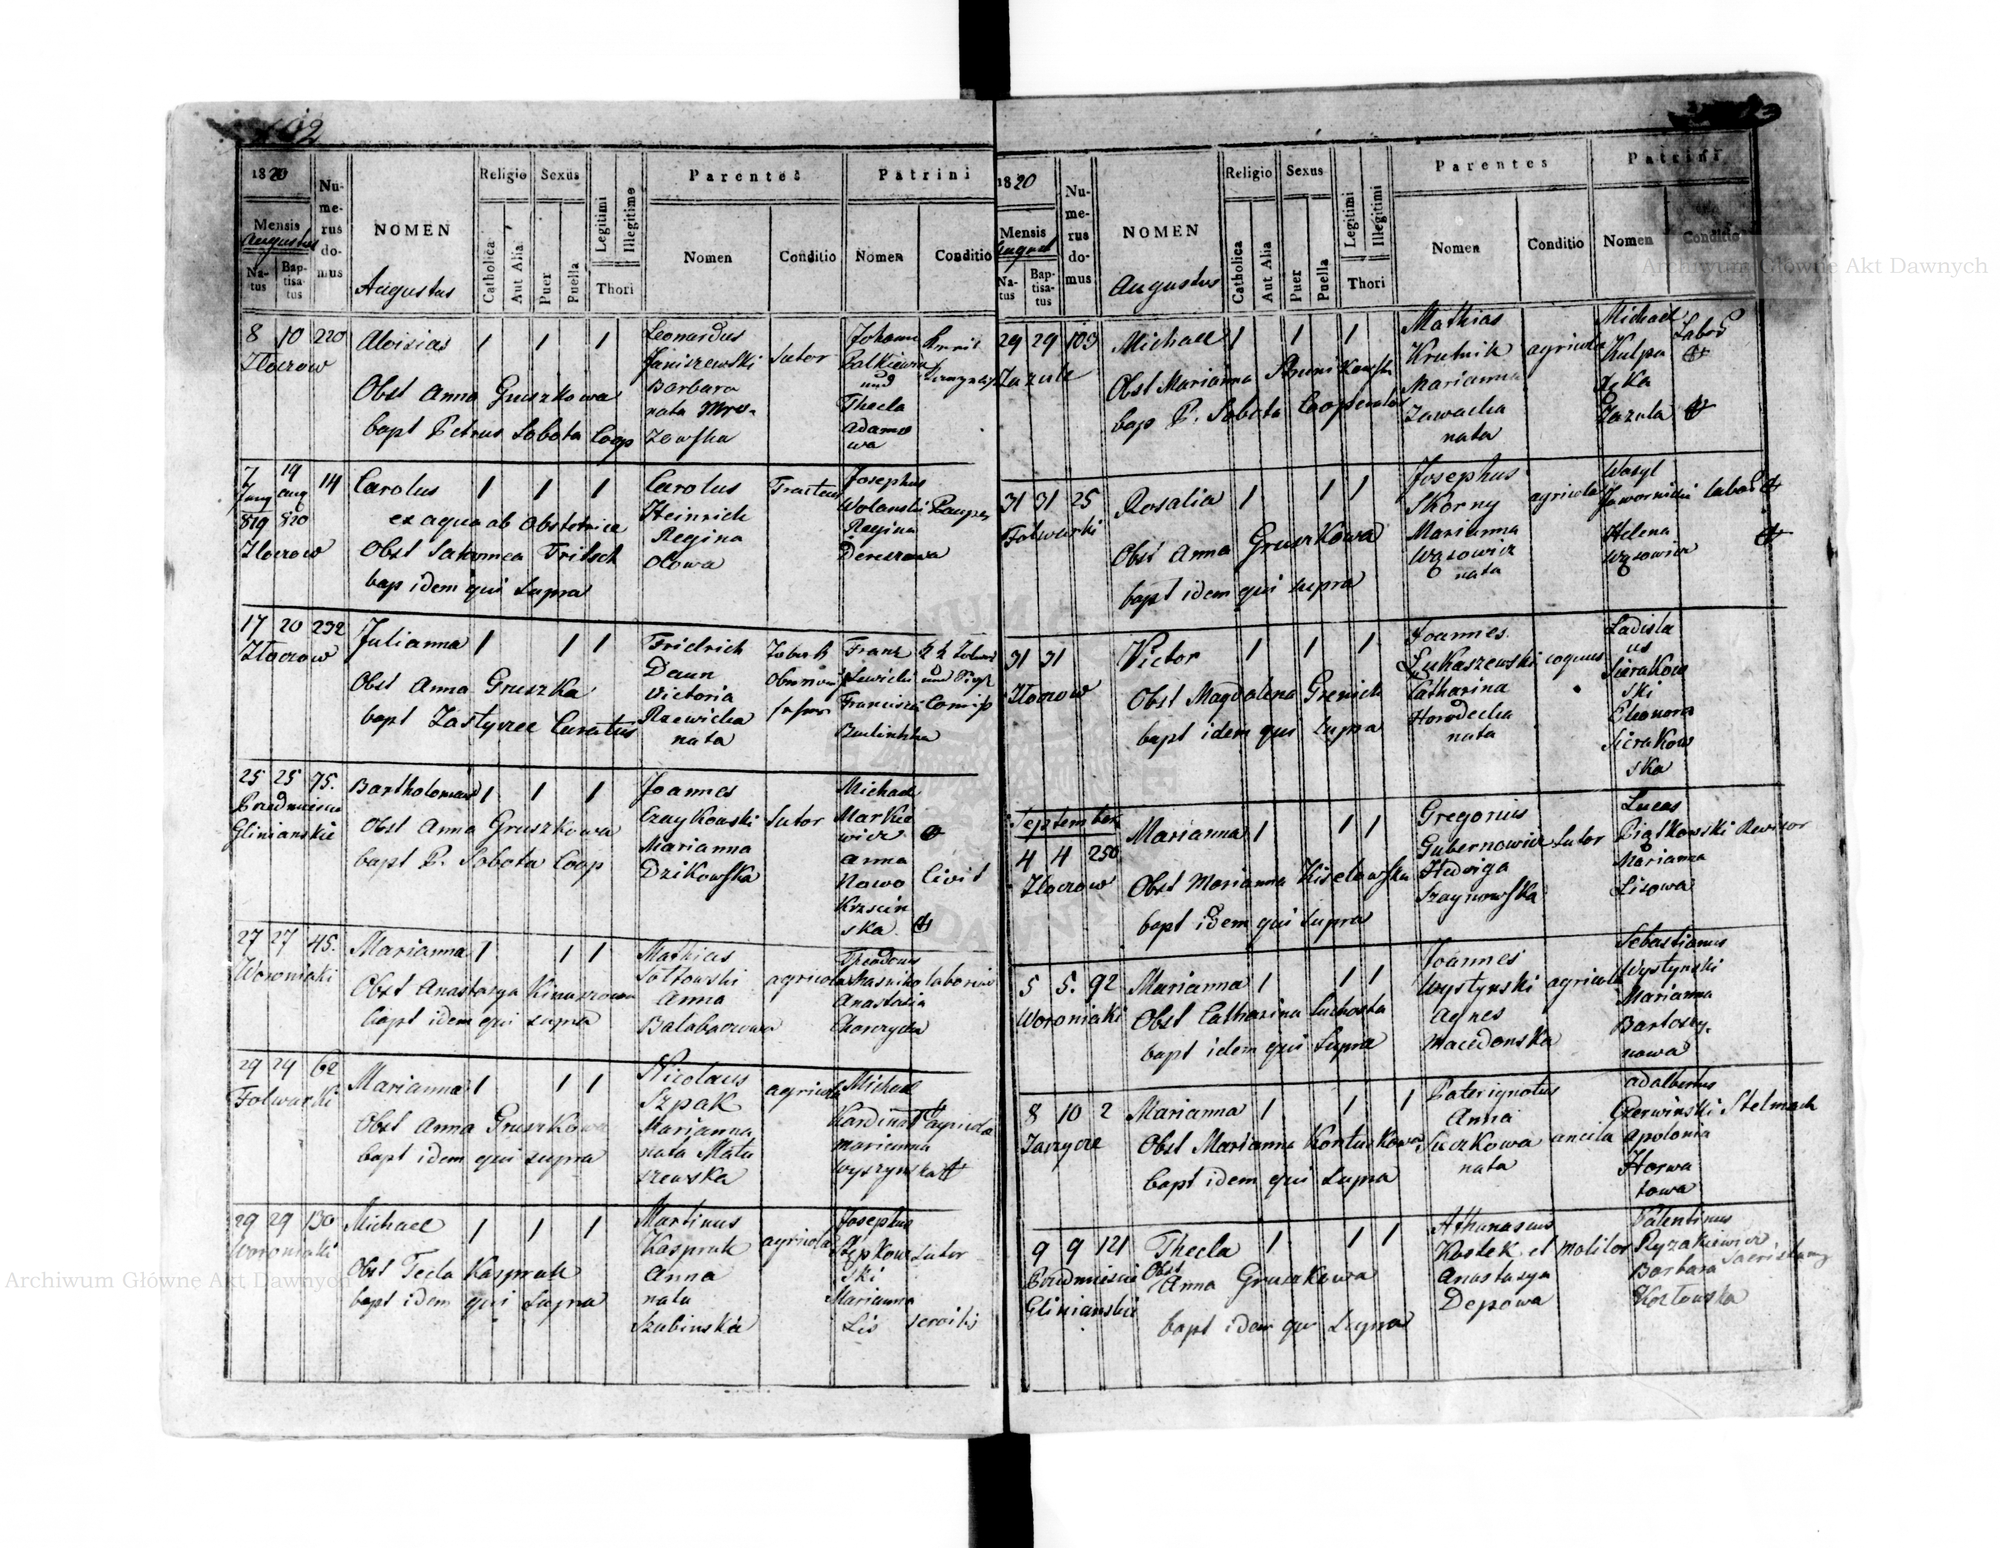 102
1820
Numerus domus
NOMEN
Religio
Sexus
Legitimi
Illegitime
Parentes
Patrini
Mensis
Augustus
Natus
Baptisatus
Augustus
Catholica
Aut Alia
Puer
Puella
Thori
Nomen
Conditio
Nomen
Conditio
8 10 220 Aloisias 1 1 1 Leonardus Johann
Zloczow Janiszewski Sutor
Obst Anna Gruszkowa Barbara und
nata Mro- Thecla
bapt Petrus Sobota Coop zewska Adamo
wa
7 19 14 Carolus 1 1 1 Carolus Tracteur Josephus
Aug Heinrich Wolanski Pauper
819 820 ex aqua ab Obstetrice Regina Regina
Zloczow Obst Salomea Fritsch Olowa Dereszowa
bap idem qui Supra
17 20 232 Julianna 1 1 1 Fridrich Franz
Zloczow Daun Lewicki und
Obst Anna Gruszka Victoria
bapt Zastyrec Curatus Rzewicka
nata
25 25 75. Bartholomeus 1 1 1 Joannes Michael
Przedmiescie Czaykowski Sutor Markie
Glinianskie Obst Anna Gruszkowa Marianna wicz
bapt P. Sobota Coop Dzikowska Anna
Nowo Civis
krzscin
ska
27 27 45. Marianna 1 1 1 Mathias Theodorus
Woroniaki Soltowski agricola
Obst Anastazya Anna Anastasia
bapt idem qui supra
29 29 62 Marianna 1 1 1 Nicolaus agricola Michael
Folwarki Szpak
Obst Anna Gruszkowa Marianna agricola
bapt idem qui supra nata Matu Marianna
szewska Wyszynska
29 29 130 Michael 1 1 1 Martinus agricola Josephus
Woroniaki Kaspruk Sutor
Obst Tecla Kaspruk Anna ski
bapt idem qui Supra nata Marianna
Szubinska Lis servilis
1820
Numerus domus
NOMEN
Religio
Sexus
Legitimi
Illegitimi
Parentes
Patrini
Mensis
August
Natus
Baptisatus
Augustus
Catholica
Aut Alia
Puer
Puella
Thori
Nomen
Conditio
Nomen
Conditio
29 29 103 Michael 1 1 1 Mathias Michael Labor
Zazule Krutnik agricola Kulpa
Obst Marianna Marianna
bap P. Sobota Cooperator Zawacka Zazula
nata
31 31 25 Rosalia 1 1 1 Josephus Wasyl
Folwarki Skorny agricola Jawornicki Labor
Obst Anna Gruszkowa Marianna Helena
Wąsowicz Wąsowicz
bapt idem qui supra nata
31 31 Victor 1 1 1 Joannes Ladisla
Zloczow Lukaszewski coquus us
Obst Magdalena Grenich Catharina Sierakow
bapt idem qui Supra Horodecka ski
nata Eleonora
Sierakow
ska
September
4 4 250 Marianna 1 1 1 Gregorius Lucas
Zloczow Gubernowicz Sutor Piątkowski Rewisor
Obst Marianna Kiselowska Hedwiga Marianna
bapt idem qui Supra Lisowa
5 5. 92 Marianna 1 1 1 Joannes Sebastianus
Woroniaki Wystynski agricola Wystynski
Obst Catharina Suchocka Agnes Marianna
bapt idem qui Supra Macedonska Bartoszy-
nowa
8 10 2 Marianna 1 1 1 Pater ignotus Adalbertus
Zarzycze Anna Czerwinski Stelmach
Obst Marianna Kontuskowa Suczkowa ancila Apolonia
bapt idem qui Supra nata Horwa
towa
9 9 121 Thecla 1 1 1 Athanasius Valentinus
Przedmiescie Obst Kostek et molitor Ryzakiewicz
Glinianskie Anna Gruszkowa Anastasya Barbara
Depowa Kozlowska
bapt idem qui Supra
Archiwum Główne Akt Dawnych
Archiwum Główne Akt Dawnych